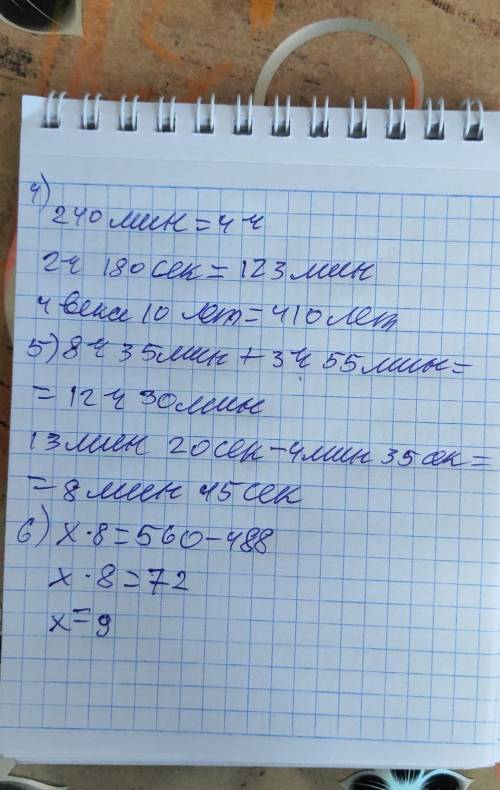 4)
240 мин = 4 ч
2ч 180 сек = 123 мин
4 века 10 лет = 410 лет
5) 8 ч 35 мин + 3 ч 55 мин =
= 12 ч 30 мин
13 мин 20 сек - 4 мин 35 сек =
= 8 мин 45 сек
6) х · 8 = 560 - 488
х · 8 = 72
х = 9